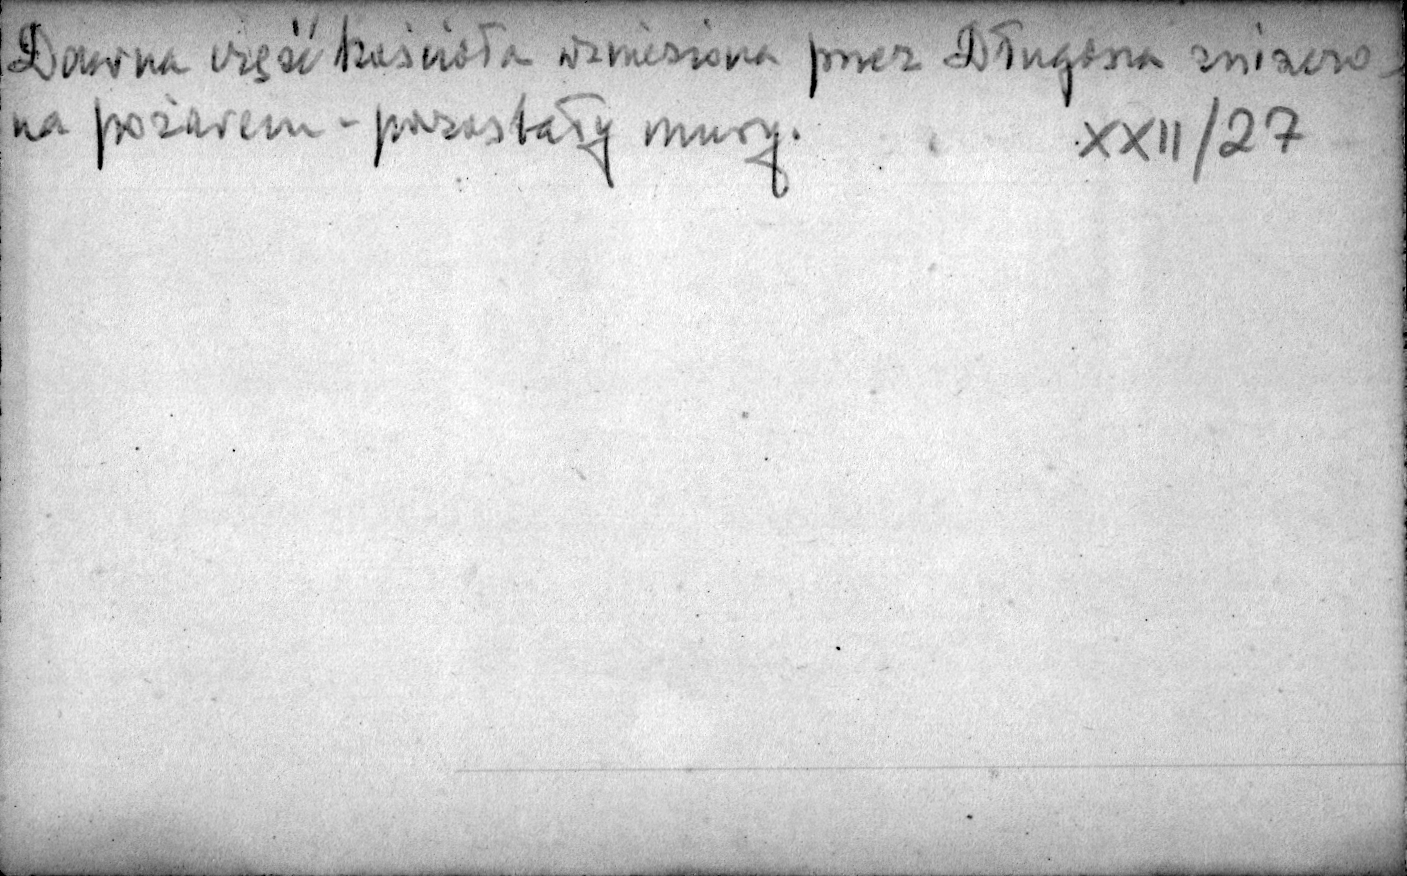 Dawna część kościoła wzniesiona przez Długosza zniszczo-
na pożarem - pozostały mury. XXII/27